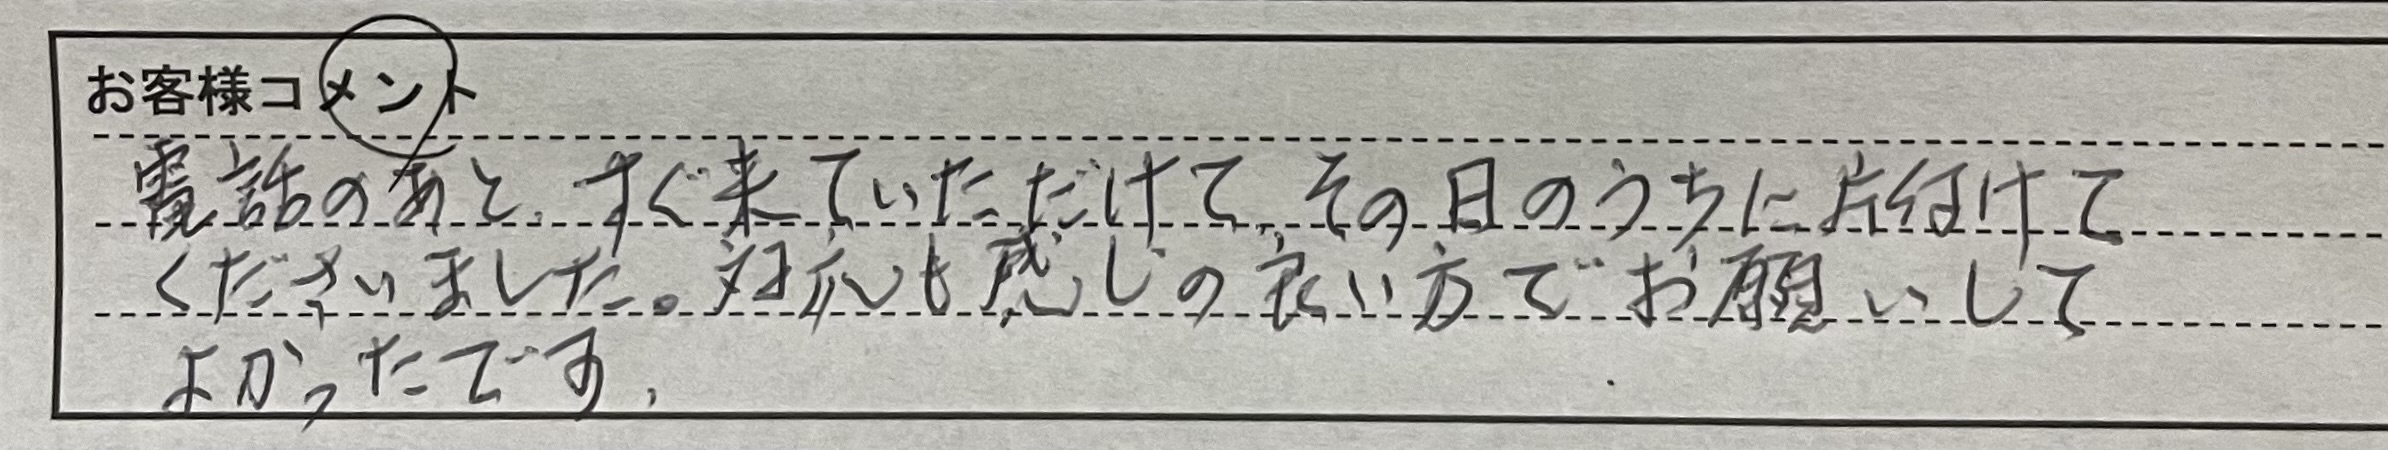 お客様コメント
電話のあと、すぐ来ていただけて、その日のうちに片付けて
くださいました。対応も感じの良い方でお願いして
よかったです。